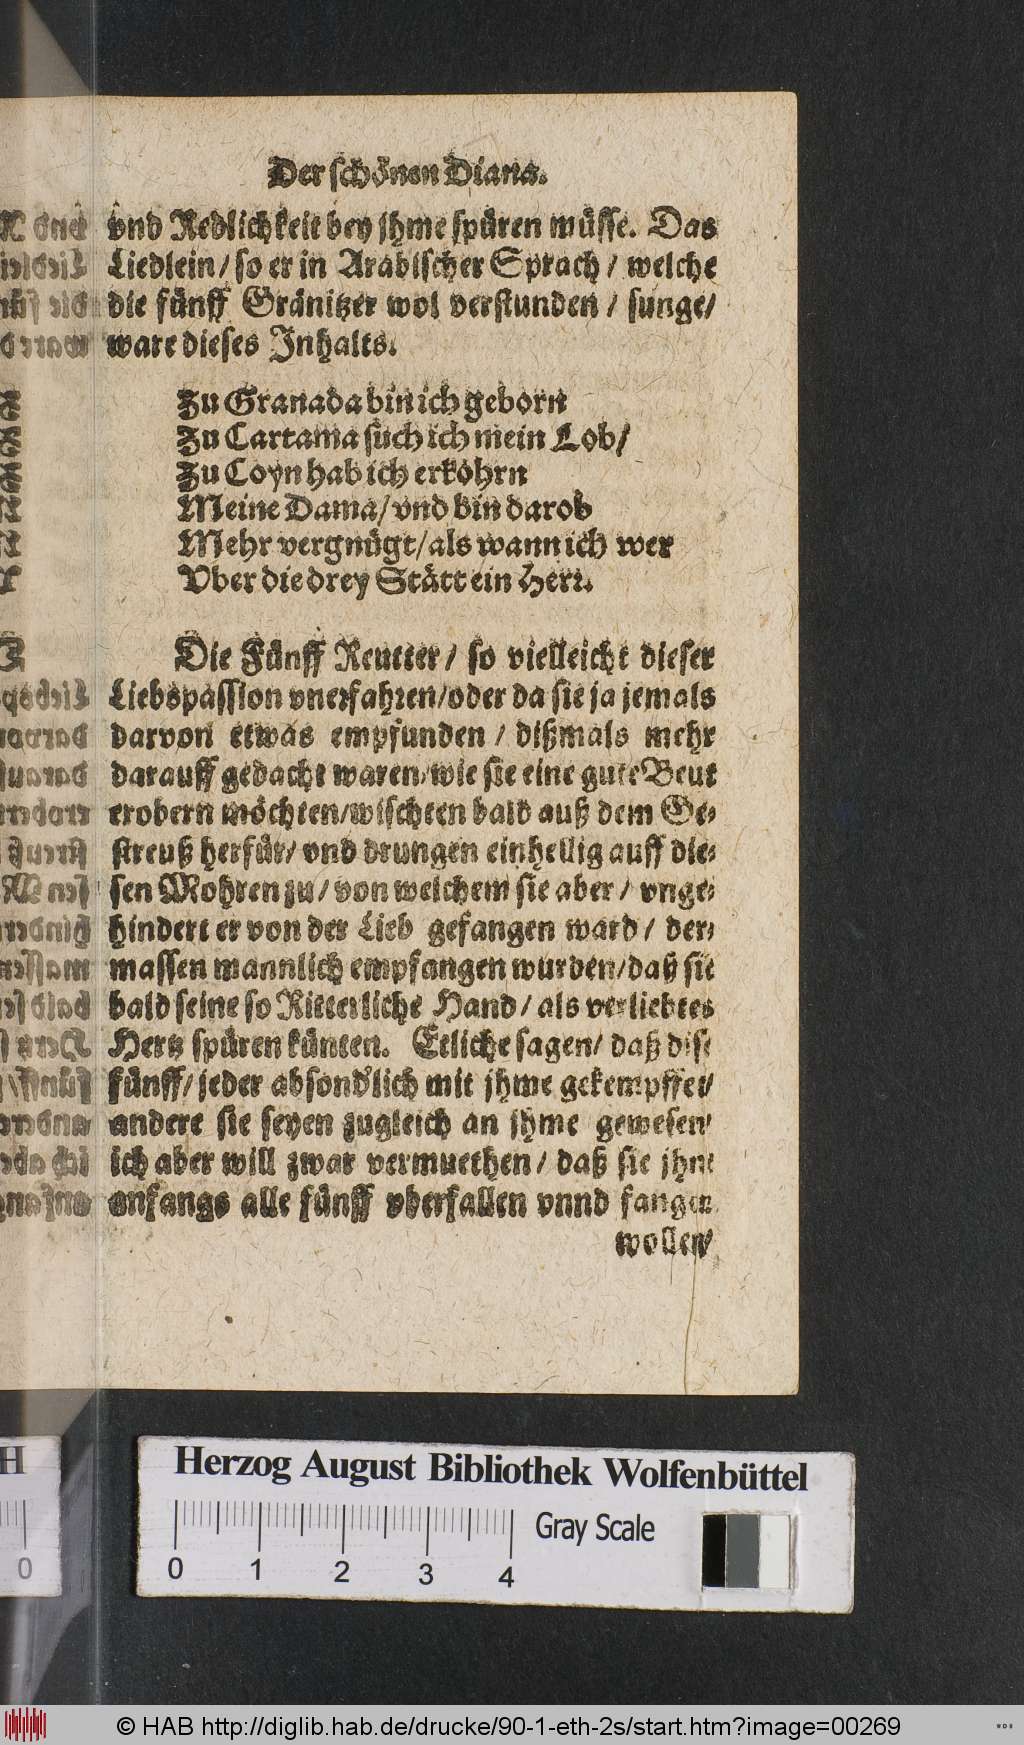 Der schönen Diana.
vnd Redlichkeit bey jhme spüren müsse. Das
Liedlein/ so er in Arabischer Sprach/ welche
die fünff Gränitzer wol verstunden/ sunge/
ware dieses Inhalts.
Zu Granada bin ich geborn
Zu Cartama such ich mein Lob/
Zu Coyn hab ich erkohrn
Meine Dama/ vnd bin darob
Mehr vergnügt/ als wann ich wer
Vber die drey Stätt ein Herr.
Die Fünff Reutter/ so vielleicht dieser
Liebspassion vnerfahren/ oder da sie ja jemals
darvon etwas empfunden/ dißmals mehr
darauff gedacht waren/ wie sie eine gute Beut
erobern möchten/ wischten bald auß dem Ge-
streuß herfür/ vnd drungen einhellig auff die-
sen Mohren zu/ von welchem sie aber/ vnge-
hindert er von der Lieb gefangen ward/ der-
massen mannlich empfangen wurden/ daß sie
bald seine so Ritterliche Hand/ als verliebtes
Hertz spüren künten. Etliche sagen/ daß dise
fünff/ jeder absond'lich mit jhme gekempffet/
andere sie seyen zugleich an jhme gewesen/
ich aber will zwar vermuethen/ daß sie jhne
anfangs alle fünff vberfallen vnnd fangen
wollen/
H
Herzog August Bibliothek Wolfenbüttel
Gray Scale
0
0 1 2 3 4
© HAB http://diglib.hab.de/drucke/90-1-eth-2s/start.htm?image=00269